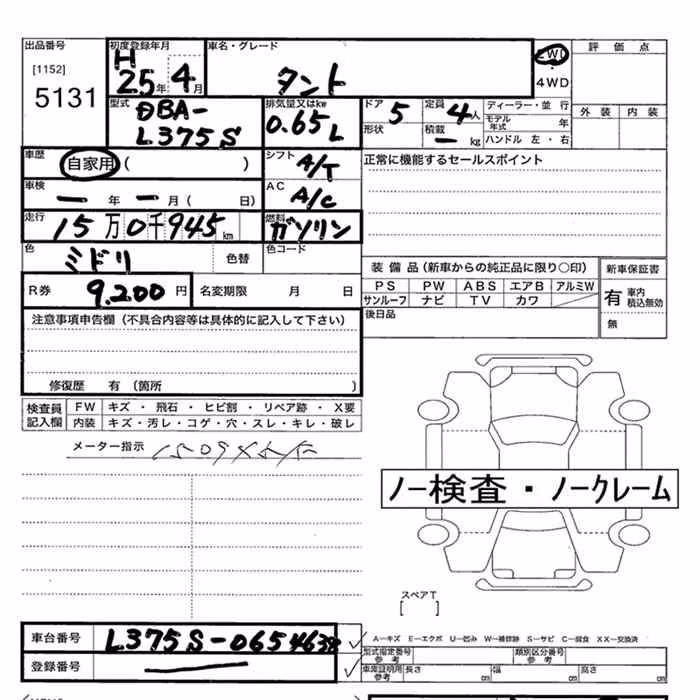 出品番号 初度登録年月 車名・グレード 評価点
[1152] H 2WD
5131 25年 4月 タント 4WD
型式 排気量又はkw ドア 定員 ディーラー・並行 外装 内装
DBA- 0.65L 5 4人 モデル年式 年
L375S 形状 積載 ー kg ハンドル 左・右
車歴 自家用 ( ) シフト A/T 正常に機能するセールスポイント
車検 ー 年 ー 月( 日) AC A/C
走行 15万0千945km 燃料 ガソリン
色 ミドリ 色替 色コード
装備品(新車からの純正品に限り○印) 新車保証書
R券 9.200円 名変期限 月 日 PS PW ABS エアB アルミW 有 車内積込無効
サンルーフ ナビ TV カワ
注意事項申告欄(不具合内容等は具体的に記入して下さい) 後日品 無
修復歴 有(箇所 )
検査員 FW キズ・飛石・ヒビ割・リペア跡・X要
記入欄 内装 キズ・汚レ・コゲ・穴・スレ・キレ・破レ
メーター指示
ノー検査・ノークレーム
スペアT
[ ]
車台番号 L375S-0654638 A−キズ E−エクボ U−凹み W−補修跡 S−サビ C−腐食 XX−交換済
型式指定番号 参考 類別区分番号 参考
登録番号 車庫証明用 参考 長さ cm 幅 cm 高さ cm